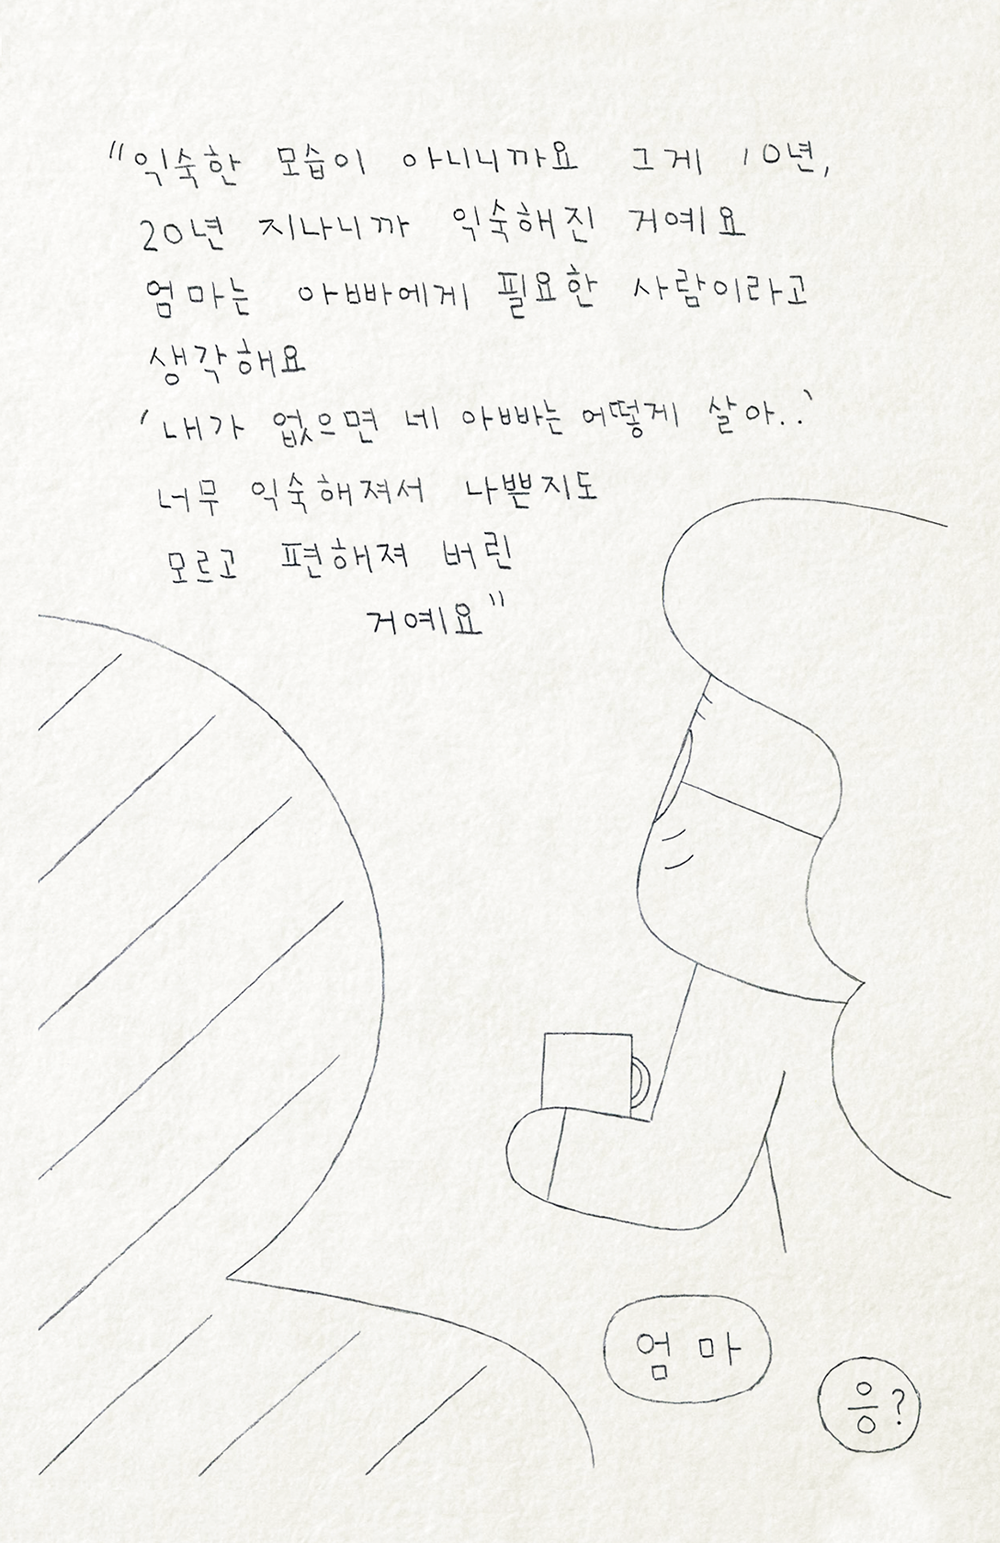 "익숙한 모습이 아니니까요 그게 10년,
20년 지나니까 익숙해진 거예요
엄마는 아빠에게 필요한 사람이라고
생각해요
'내가 없으면 네 아빠는 어떻게 살아..'
너무 익숙해져서 나쁜지도
모르고 편해져 버린
거예요"
엄마
응?